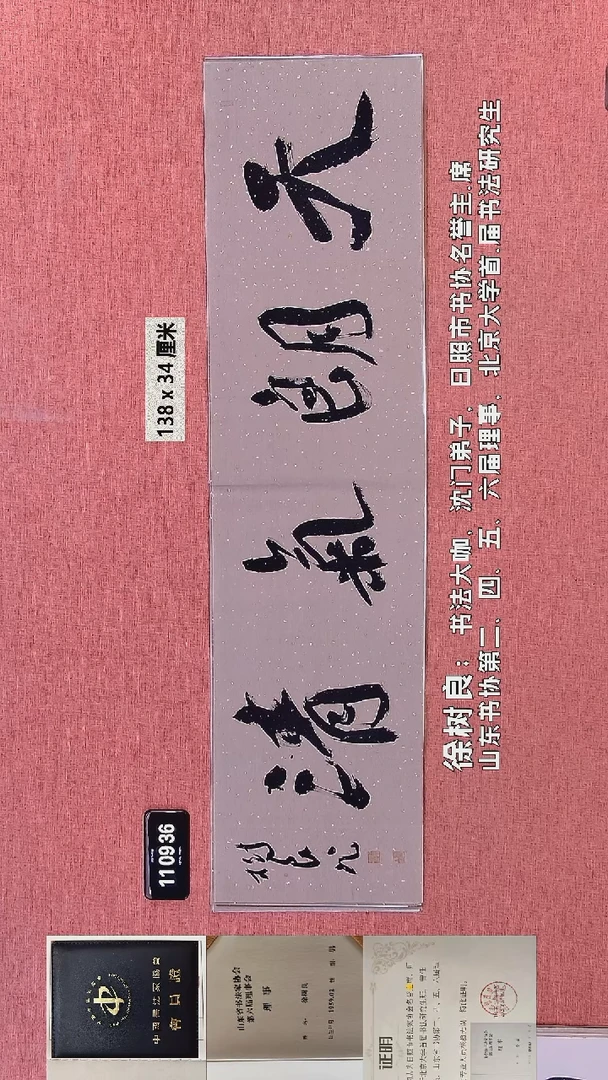 138 x 34 厘米
110936
天朗氣清
樹良
徐树良：书法大咖、沈门弟子、日照市书协名誉主.席
山东书协第二、四、五、六届理事、北京大学首.届书法研究生
中國書法家協會
會員證
山东省书法家协会
第六届理事会
理 事
证明